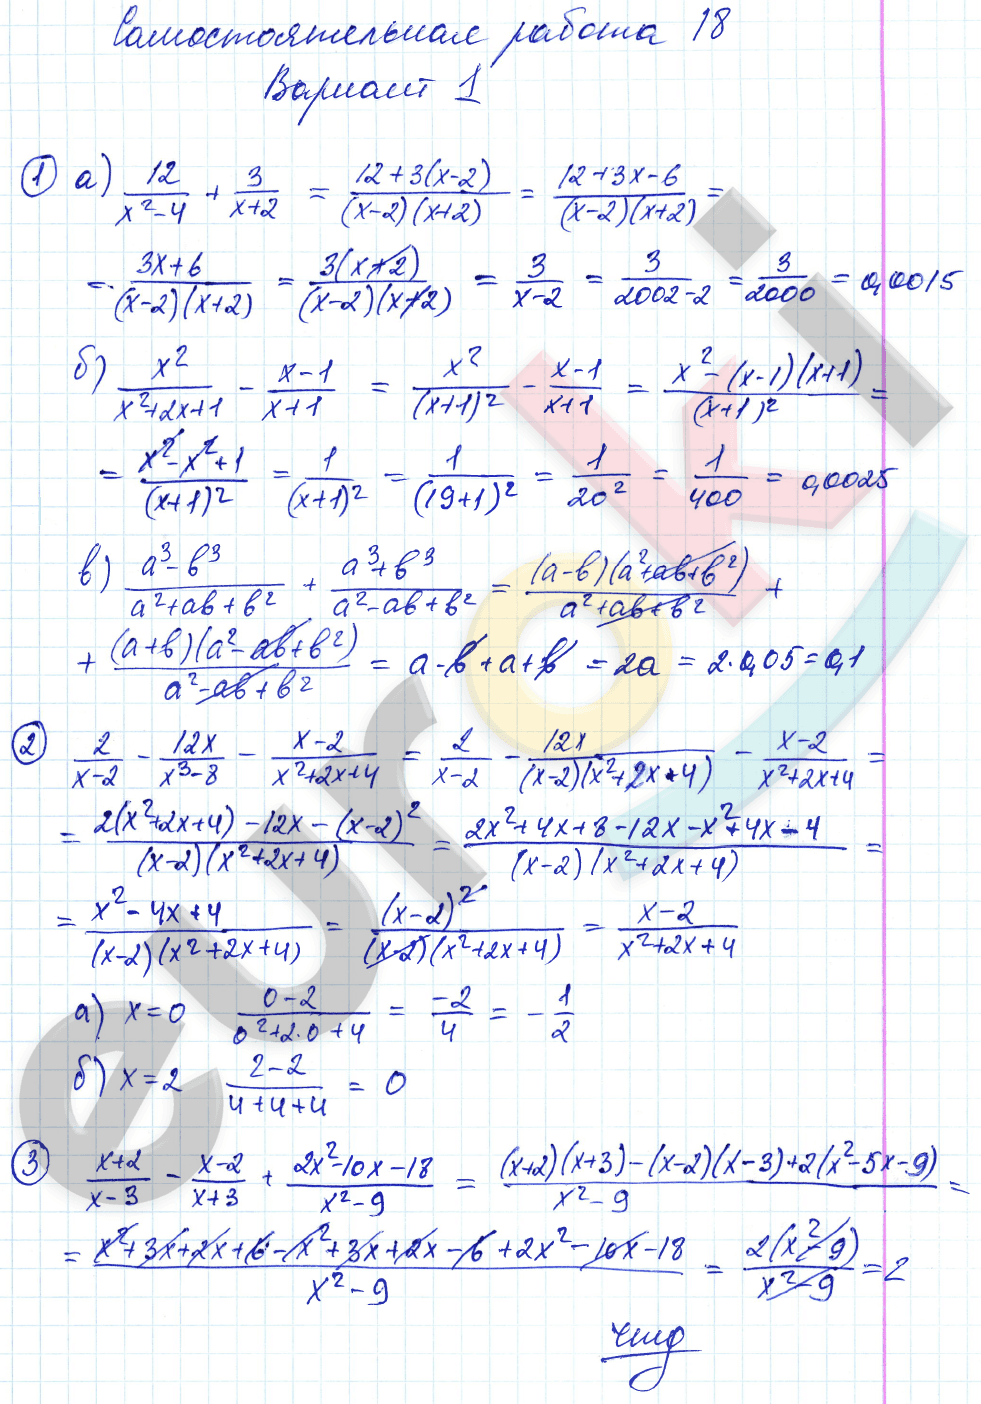 Самостоятельная работа 18
Вариант 1
① а) 12/(x²-4) + 3/(x+2) = (12+3(x-2))/((x-2)(x+2)) = (12+3x-6)/((x-2)(x+2)) =
= (3x+6)/((x-2)(x+2)) = 3(x+2)/((x-2)(x+2)) = 3/(x-2) = 3/(2002-2) = 3/2000 = 0,0015
б) x²/(x²+2x+1) - (x-1)/(x+1) = x²/(x+1)² - (x-1)/(x+1) = (x²-(x-1)(x+1))/(x+1)² =
= (x²-x²+1)/(x+1)² = 1/(x+1)² = 1/(19+1)² = 1/20² = 1/400 = 0,0025
в) (a³-b³)/(a²+ab+b²) + (a³+b³)/(a²-ab+b²) = (a-b)(a²+ab+b²)/(a²+ab+b²) +
+ (a+b)(a²-ab+b²)/(a²-ab+b²) = a-b+a+b = 2a = 2·0,05 = 0,1
② 2/(x-2) - 12x/(x³-8) - (x-2)/(x²+2x+4) = 2/(x-2) - 12x/((x-2)(x²+2x+4)) - (x-2)/(x²+2x+4) =
= (2(x²+2x+4)-12x-(x-2)²)/((x-2)(x²+2x+4)) = (2x²+4x+8-12x-x²+4x-4)/((x-2)(x²+2x+4)) =
= (x²-4x+4)/((x-2)(x²+2x+4)) = (x-2)²/((x-2)(x²+2x+4)) = (x-2)/(x²+2x+4)
а) x=0 (0-2)/(0²+2·0+4) = -2/4 = -1/2
б) x=2 (2-2)/(4+4+4) = 0
③ (x+2)/(x-3) - (x-2)/(x+3) + (2x²-10x-18)/(x²-9) = ((x+2)(x+3)-(x-2)(x-3)+2(x²-5x-9))/(x²-9) =
= (x²+3x+2x+6-x²+3x+2x-6+2x²-10x-18)/(x²-9) = 2(x²-9)/(x²-9) = 2
чтд
euroki